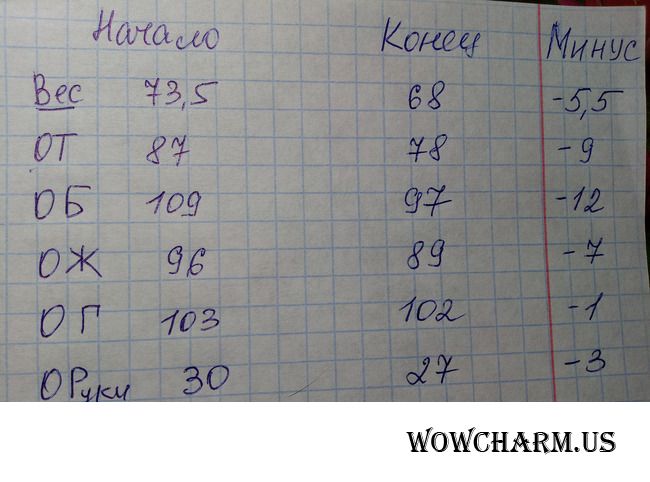 Начало Конец Минус
Вес 73,5 68 -5,5
ОТ 87 78 -9
ОБ 109 97 -12
ОЖ 96 89 -7
ОГ 103 102 -1
ОРуки 30 27 -3
WOWCHARM.US